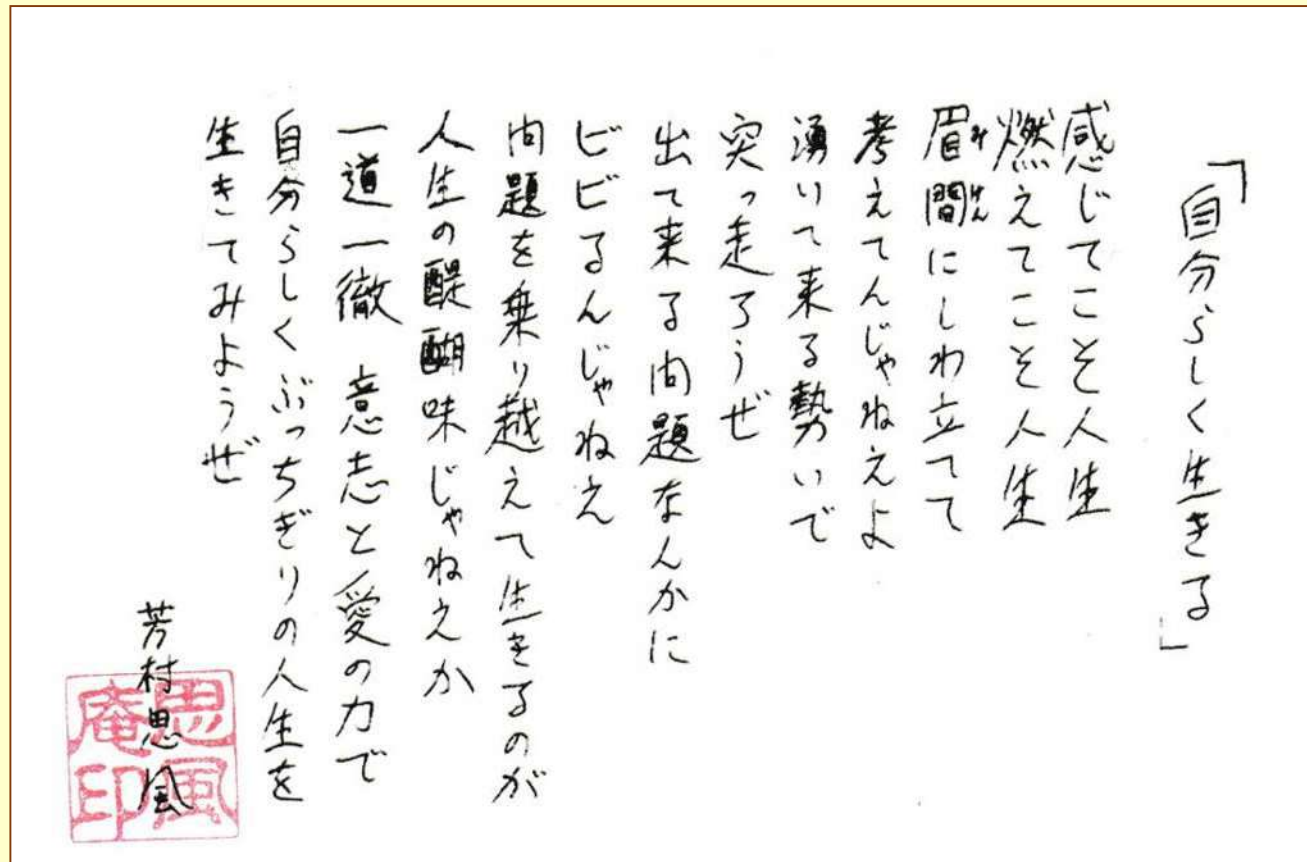 「自分らしく生きる」
感じてこそ人生
燃えてこそ人生
眉間にしわ立てて
みけん
考えてんじゃねえよ
湧いて来る勢いで
突っ走ろうぜ
出て来る問題なんかに
ビビるんじゃねえ
問題を乗り越えて生きるのが
人生の醍醐味じゃねえか
一道一徹 意志と愛の力で
自分らしくぶっちぎりの人生を
生きてみようぜ
芳村思風
思風
庵印